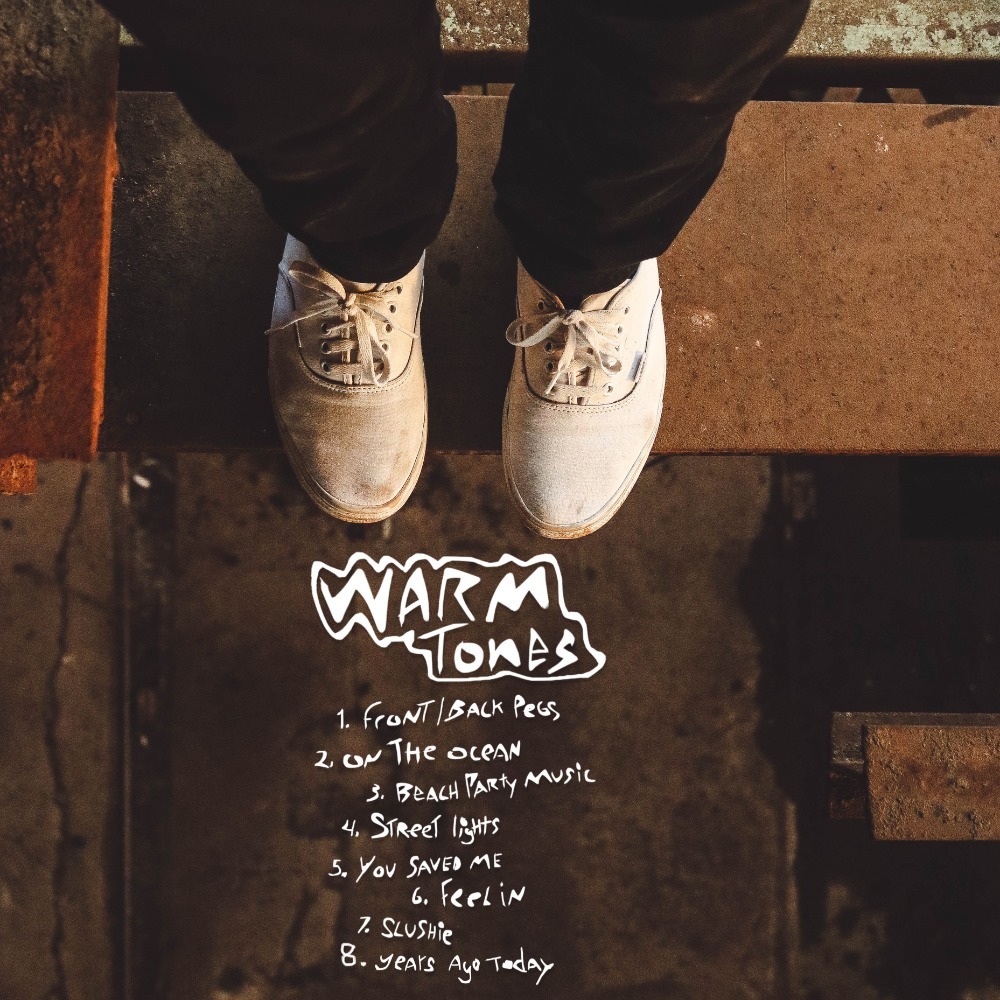 WARM
Tones
1. FRONT/BACK PeGS
2. ON THe OCEAN
3. BEACH PARTy MUSIC
4. STReeT lights
5. YOU SAVED ME
6. FeeL iN
7. SLUSHie
8. years Ago ToDAy